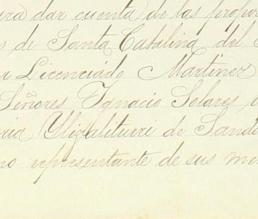 ra dar cuenta de las propo
s de Santa Catalina del
u Licenciado Martinez
Señores Ignacio Solares
uia Elizaliturri de Sando
no representante de sus me